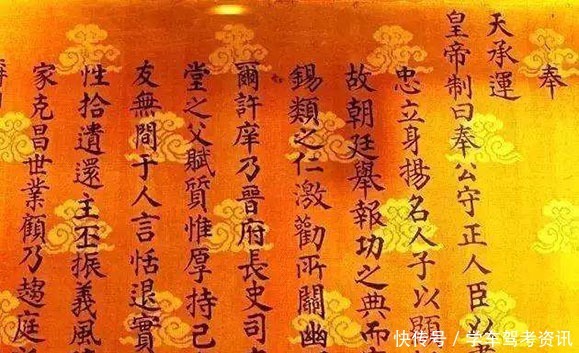 奉
天承運
皇帝制曰奉公守正人臣以
忠立身揚名人子以顯
故朝廷舉報功之典而
錫類之仁激勸所關幽
爾許庠乃晉府長史司
堂之父賦質惟厚持己
友無間于人言恬退實
性拾遺還主丕振義風
家克昌世業顧乃趨庭
快传号／学车驾考资讯